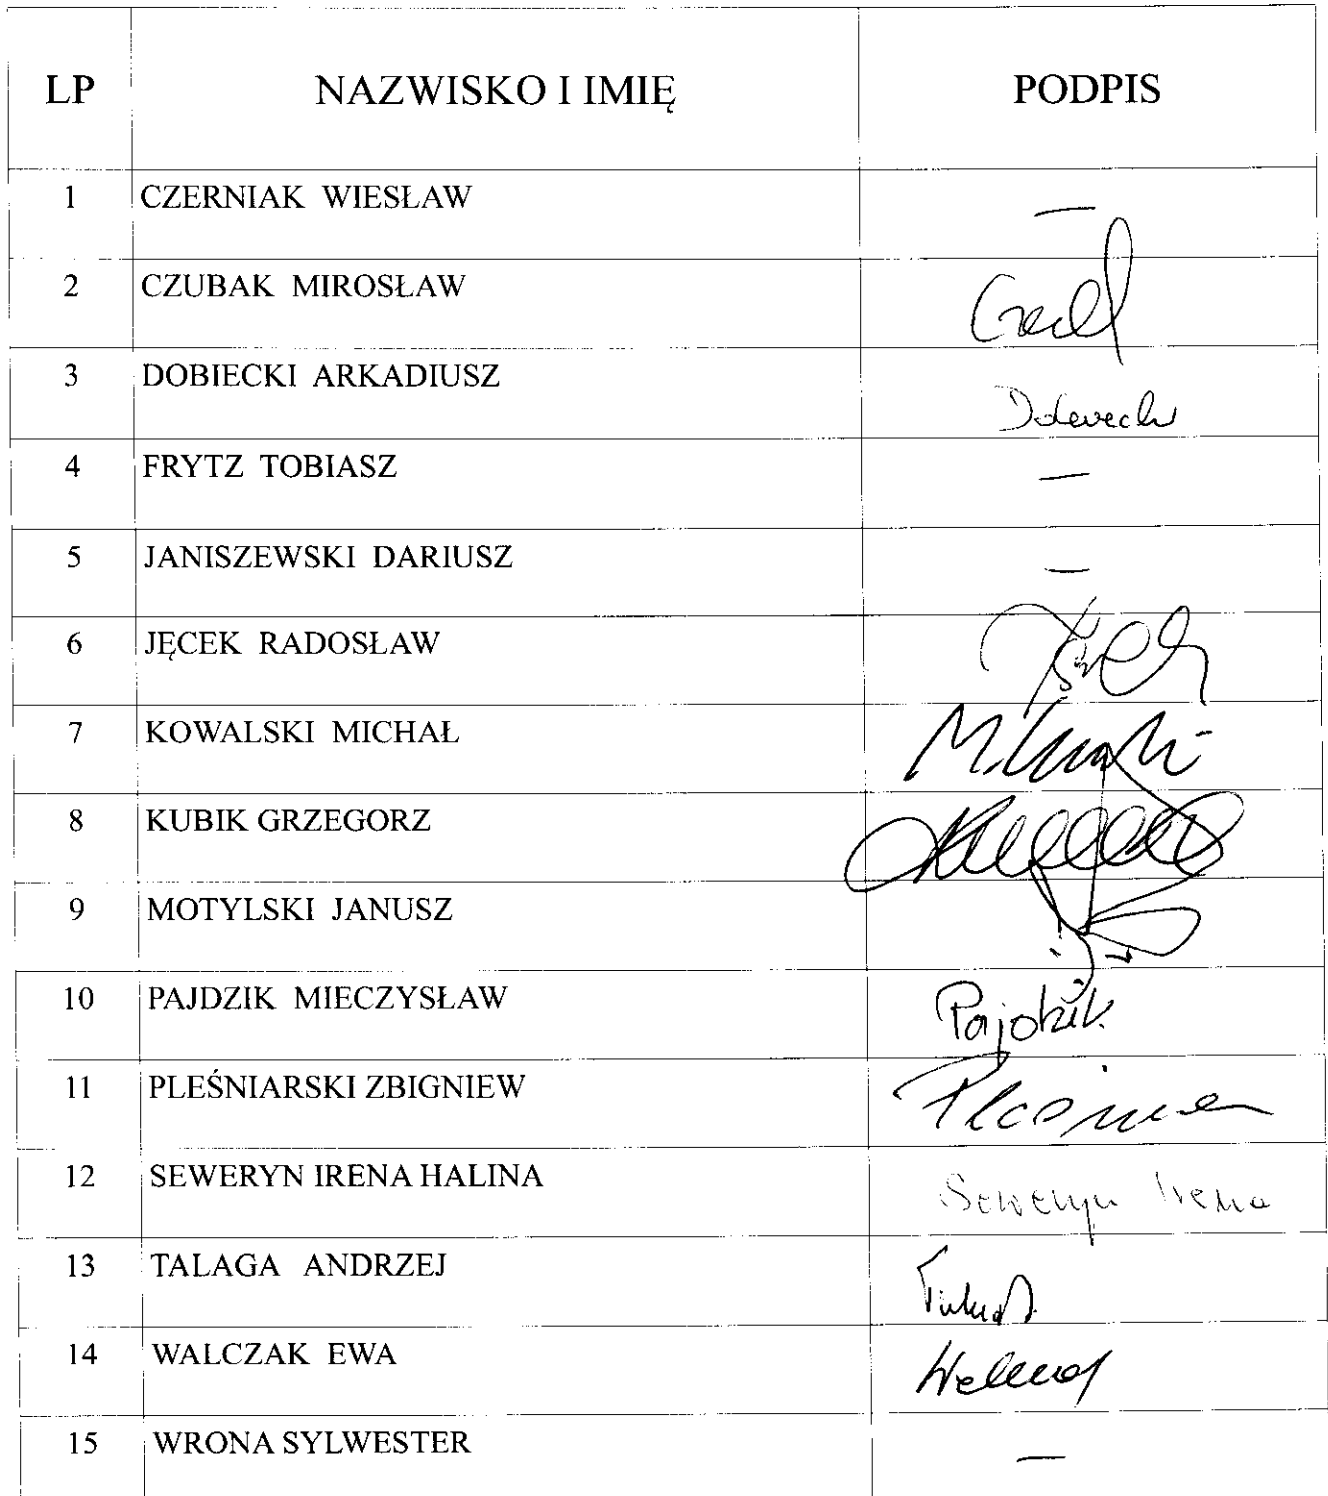 LP NAZWISKO I IMIĘ PODPIS
1 CZERNIAK WIESŁAW —
2 CZUBAK MIROSŁAW
3 DOBIECKI ARKADIUSZ
4 FRYTZ TOBIASZ —
5 JANISZEWSKI DARIUSZ —
6 JĘCEK RADOSŁAW
7 KOWALSKI MICHAŁ
8 KUBIK GRZEGORZ
9 MOTYLSKI JANUSZ
10 PAJDZIK MIECZYSŁAW Pajdzik
11 PLEŚNIARSKI ZBIGNIEW
12 SEWERYN IRENA HALINA Seweryn Irena
13 TALAGA ANDRZEJ
14 WALCZAK EWA
15 WRONA SYLWESTER —